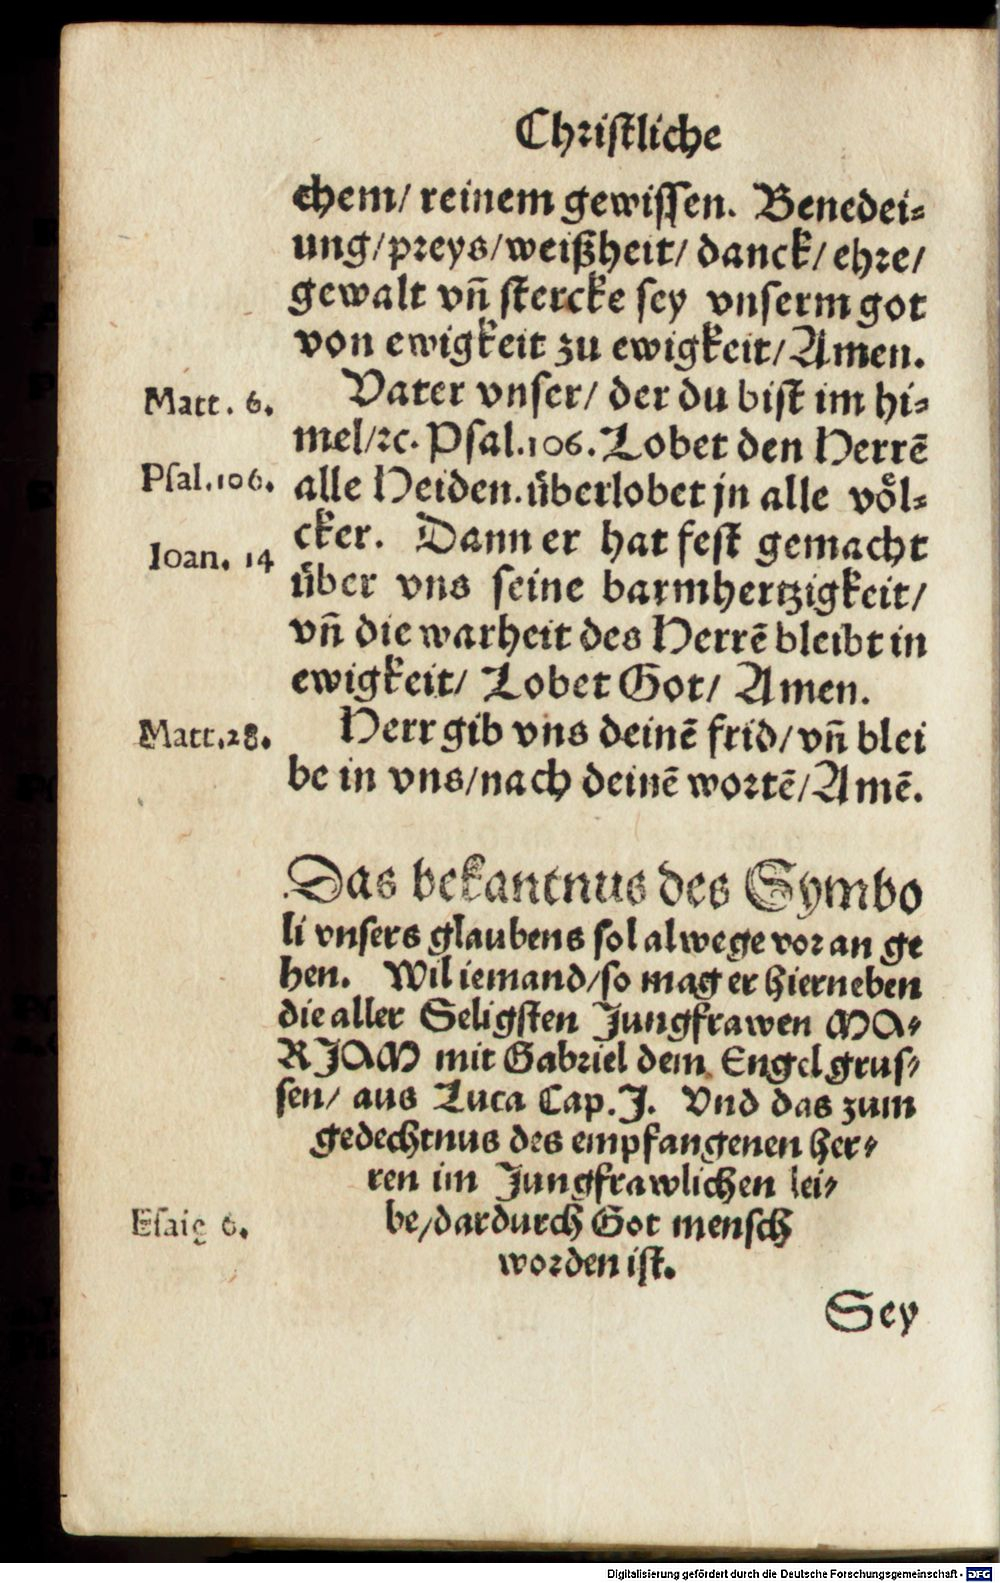 Christliche
chem/ reinem gewissen. Benedei⸗
ung/preys/weißheit/ danck/ ehre/
gewalt vñ stercke sey vnserm got
von ewigkeit zu ewigkeit/ Amen.
Matt. 6.
Vater vnser/ der du bist im hi⸗
mel/ꝛc. Psal.106. Lobet den Herrẽ
Psal.106.
alle Heiden. überlobet jn alle vöͤl⸗
cker. Dann er hat fest gemacht
Ioan. 14
über vns seine barmhertzigkeit/
vñ die warheit des Herrẽ bleibt in
ewigkeit/ Lobet Got/ Amen.
Matt.28.
Herr gib vns deinẽ frid/ vñ blei
be in vns/nach deinẽ wortẽ/Amẽ.
Das bekantnus des Symbo
li vnsers glaubens sol alwege voran ge
hen. Wil iemand/so mag er hierneben
die aller Seligsten Jungfrawen MA⸗
RJAM mit Gabriel dem Engel grus⸗
sen/ aus Luca Cap. J. Vnd das zum
gedechtnus des empfangenen her⸗
ren im Jungfrawlichen lei⸗
Esaię 6.
be/dardurch Got mensch
worden ist.
Sey
Digitalisierung gefördert durch die Deutsche Forschungsgemeinschaft - DFG